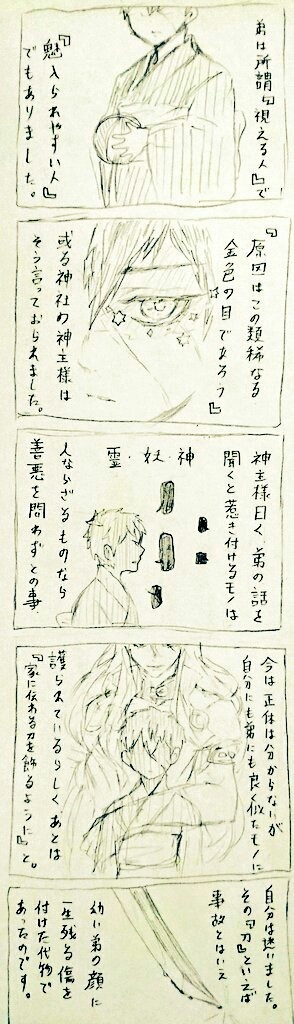 弟は所謂『視える人』で
『魅入られやすい人』
でもありました。
『原因はこの類稀なる
金色の目であろう』
或る神社の神主様は
そう言っておられました。
神主様曰く、弟の話を
聞くと惹き付けるモノは
神・妖・霊
人ならざるものなら
善悪を問わずとの事
今は正体は分からないが
自分にも弟にも良く似たモノに
護られているらしくあとは
『家に伝わる刀を飾るように』と。
自分は迷いました。
その『刀』といえば
事故とはいえ
幼い弟の顔に
一生残る傷を
付けた代物で
あったのです。